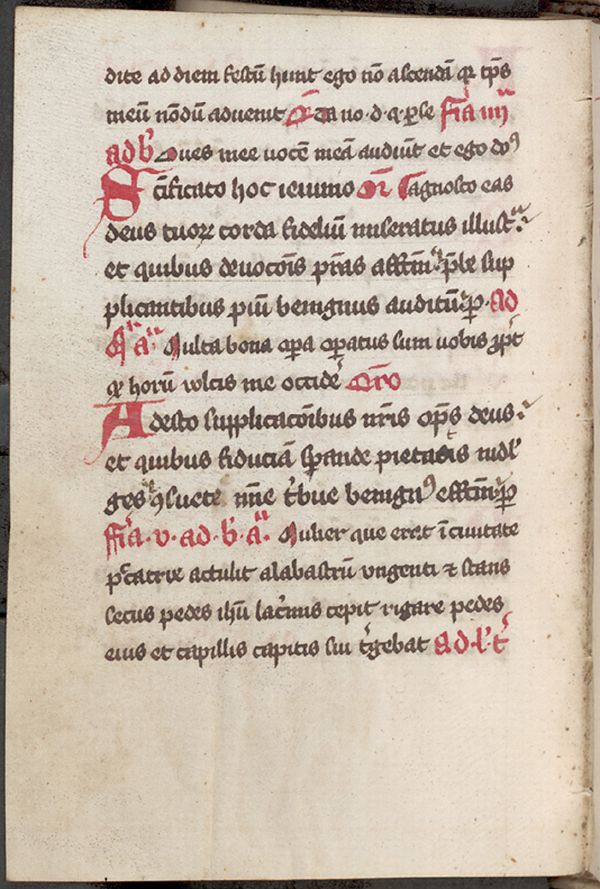 dite ad diem festū hunc ego nō ascendā qr tp̄s
meū nōdū aduenit Or̄ Da no · d · q · p̱se fr̄ia iiij
ad b̄ Oues mee uocē meā audiūt et ego dōꝰ
Sc̄ificato hoc ieiunio Or̄ Cagnosco eas
deus tuoꝝ corda fideliū miseratus illust̄ᵃ
et quibus deuoc̄ois pr̄as aff̄cm̄ p̄be sup
plicantibus piū benignus auditū · p̱ · ad
Q̄ aᵃ Multa bona op̱a op̱atus sum uobis ꝓpt̄
qr horū wltis me occide᷑ Or̄o
Adesto supplicac̄oibus nr̄is op̄s deus ·
et quibus fiduciā sp̱ande pietatis indl̄
ges ꝯsuete m̄ie t̄bue benignꝰ eff̄cm̄ · p̱
fr̄ia · v · ad · b̄ · aᵃ Mulier que erat ī ciuitate
pc̄catrix actulit alabastrū vngenti ⁊ stans
secus pedes ih̄u lac̄mis cepit rigare pedes
eius et capillis capitis sui t̄gebat ad · l᷑ · t᷑